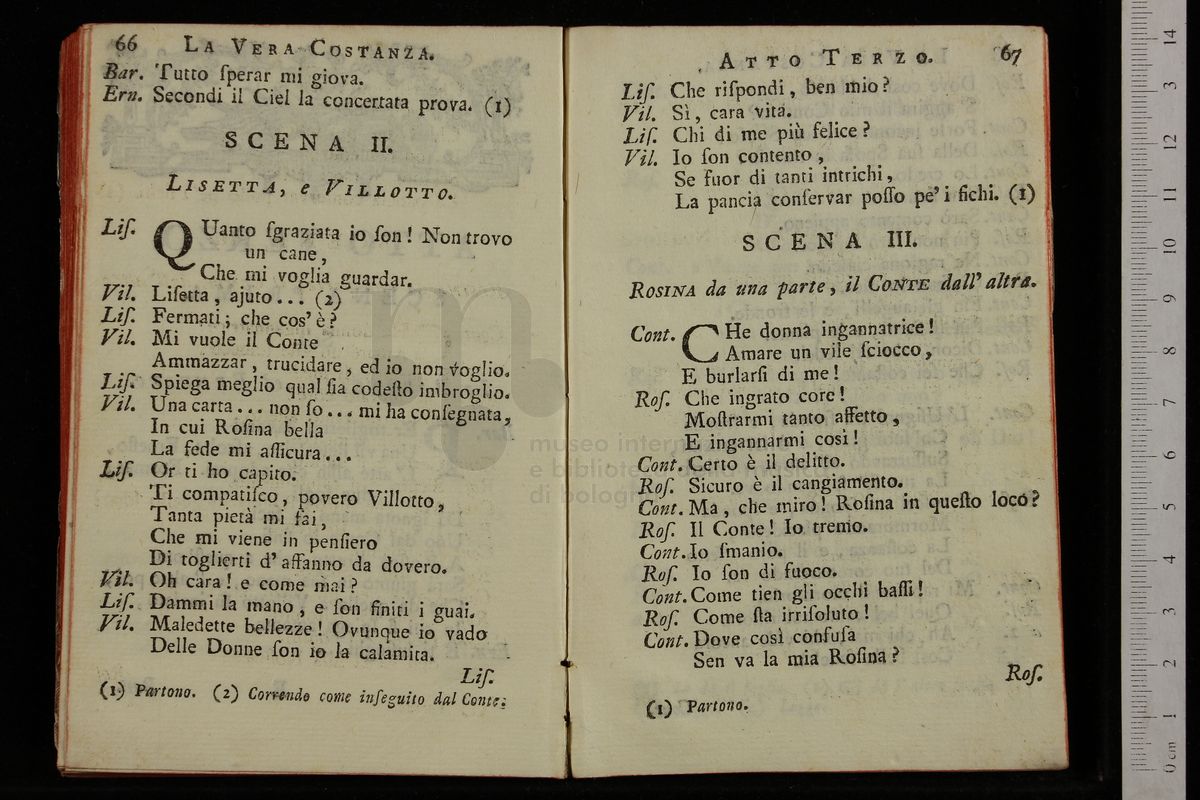 66 LA VERA COSTANZA.
Bar. Tutto ſperar mi giova.
Ern. Secondi il Ciel la concertata prova. (1)
SCENA II.
LISETTA, e VILLOTTO.
Liſ. QUanto ſgraziata io ſon! Non trovo
un cane,
Che mi voglia guardar.
Vil. Liſetta, ajuto... (2)
Liſ. Fermati; che cos' è?
Vil. Mi vuole il Conte
Ammazzar, trucidare, ed io non voglio.
Liſ. Spiega meglio qual ſia codeſto imbroglio.
Vil. Una carta... non ſo... mi ha conſegnata,
In cui Roſina bella
La fede mi aſſicura...
Liſ. Or ti ho capito.
Ti compatiſco, povero Villotto,
Tanta pietà mi fai,
Che mi viene in penſiero
Di toglierti d' affanno da dovero.
Vil. Oh cara! e come mai?
Liſ. Dammi la mano, e ſon finiti i guai.
Vil. Maledette bellezze! Ovunque io vado
Delle Donne ſon io la calamita.
Liſ.
(1) Partono. (2) Correndo come inſeguito dal Conte.
ATTO TERZO. 67
Liſ. Che riſpondi, ben mio?
Vil. Sì, cara vita.
Liſ. Chi di me più felice?
Vil. Io ſon contento,
Se fuor di tanti intrichi,
La pancia conſervar poſſo pe' i fichi. (1)
SCENA III.
ROSINA da una parte, il CONTE dall' altra.
Cont. CHe donna ingannatrice!
Amare un vile ſciocco,
E burlarſi di me!
Roſ. Che ingrato core!
Moſtrarmi tanto affetto,
E ingannarmi così!
Cont. Certo è il delitto.
Roſ. Sicuro è il cangiamento.
Cont. Ma, che miro! Roſina in queſto loco?
Roſ. Il Conte! Io tremo.
Cont. Io ſmanio.
Roſ. Io ſon di fuoco.
Cont. Come tien gli occhi baſſi!
Roſ. Come ſta irriſoluto!
Cont. Dove così confuſa
Sen va la mia Roſina?
Roſ.
(1) Partono.
museo
e biblio
di bologna
0 cm 1 2 3 4 5 6 7 8 9 10 11 12 13 14